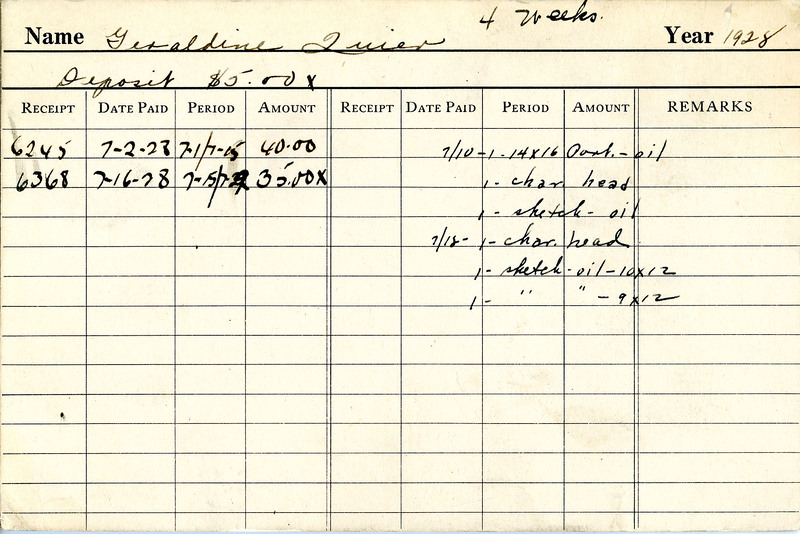 4 Weeks.
Name Geraldine Quier Year 1928
Deposit $5.00 x
RECEIPT DATE PAID PERIOD AMOUNT RECEIPT DATE PAID PERIOD AMOUNT REMARKS
6245 7-2-28 7-1/7-15 40.00 7/10-1-14x16 Port.-oil
6368 7-16-28 7-15/7-29 35.00x 1- char. head
1- sketch- oil
7/18- 1-char. head
1- sketch-oil-10x12
1- " " -9x12